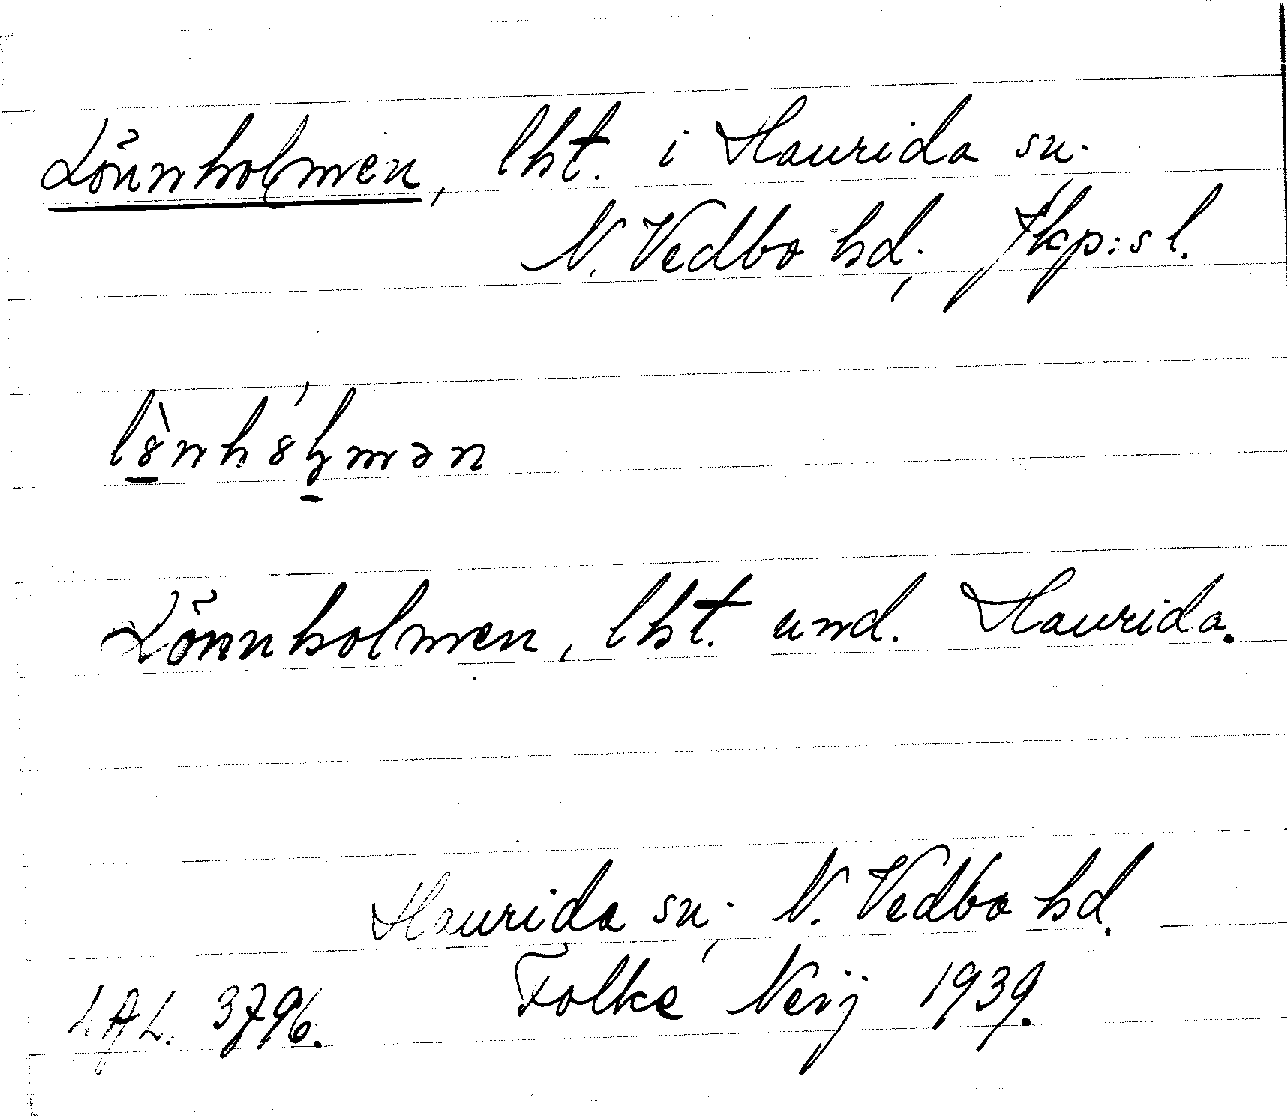 Lönnholmen, lht. i Haurida sn.
N. Vedbo hd; Jkp:s l.
Lönnholmen, lht. und. Haurida.
Haurida sn; N. Vedbo hd.
Folke Neij 1939.
LAL. 3796.